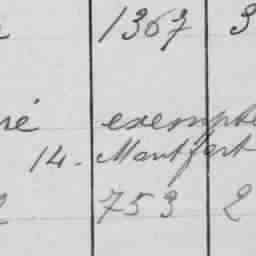 1367 3
né exempté
14. Montfort
753 2